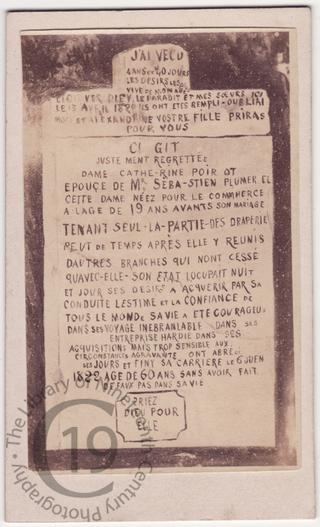 J'AI VECU
4 ANS et 40 JOURS
LES DESIRS
VIVE DE MON AGE
VOIR DIEU LE PARADIT ET MES SŒURS ICI
LE 13 AVRIL ILS ONT ETES REMPLI OUBLIAI
MOIS ET ALEXANDRINE VOSTRE FILLE PRIRAS
POUR VOUS
CI GIT
JUSTEMENT REGRETTEE
DAME CATHERINE POIROT
EPOUCE DE Mr SEBA-STIEN PLUMER EL
CEITE DAME NÉEZ POUR LE COMMERCE
A LAGE DE 19 ANS AVANTS SON MARIAGE
TENANT SEUL-LA-PARTIE-DES DRAPERIE
PEUT DE TEMPS APRÈS ELLE Y REUNIS
DAUTRES BRANCHES QUI NONT CESSÉ
QUAVEC-ELLE-SON ETAT LOCUPAIT NUIT
ET JOUR SES DESIRS A ACQUERIR PAR SA
CONDUITE LESTIME ET LA CONFIANCE DE
TOUS LE MONDE SAVIE A ETE COURAGIEU
DANS SES VOYAGE INEBRANLABLE DANS SES
ENTREPRISE HARDIE DANS SES
ACQUISITIONS MAIS TROP SENSIBLE AUX
CIRCONSTANCES AGRAVANTE ONT ABRE
SES JOURS ET FINY SA CARRIERE LE 6 JUEN
1829 AGE DE 60 ANS SANS AVOIR FAIT
DE FAUX PAS DANS SA VIE
PRIEZ
DIEU POUR
ELLE
The Library Of Nineteenth-Century Photography
C19